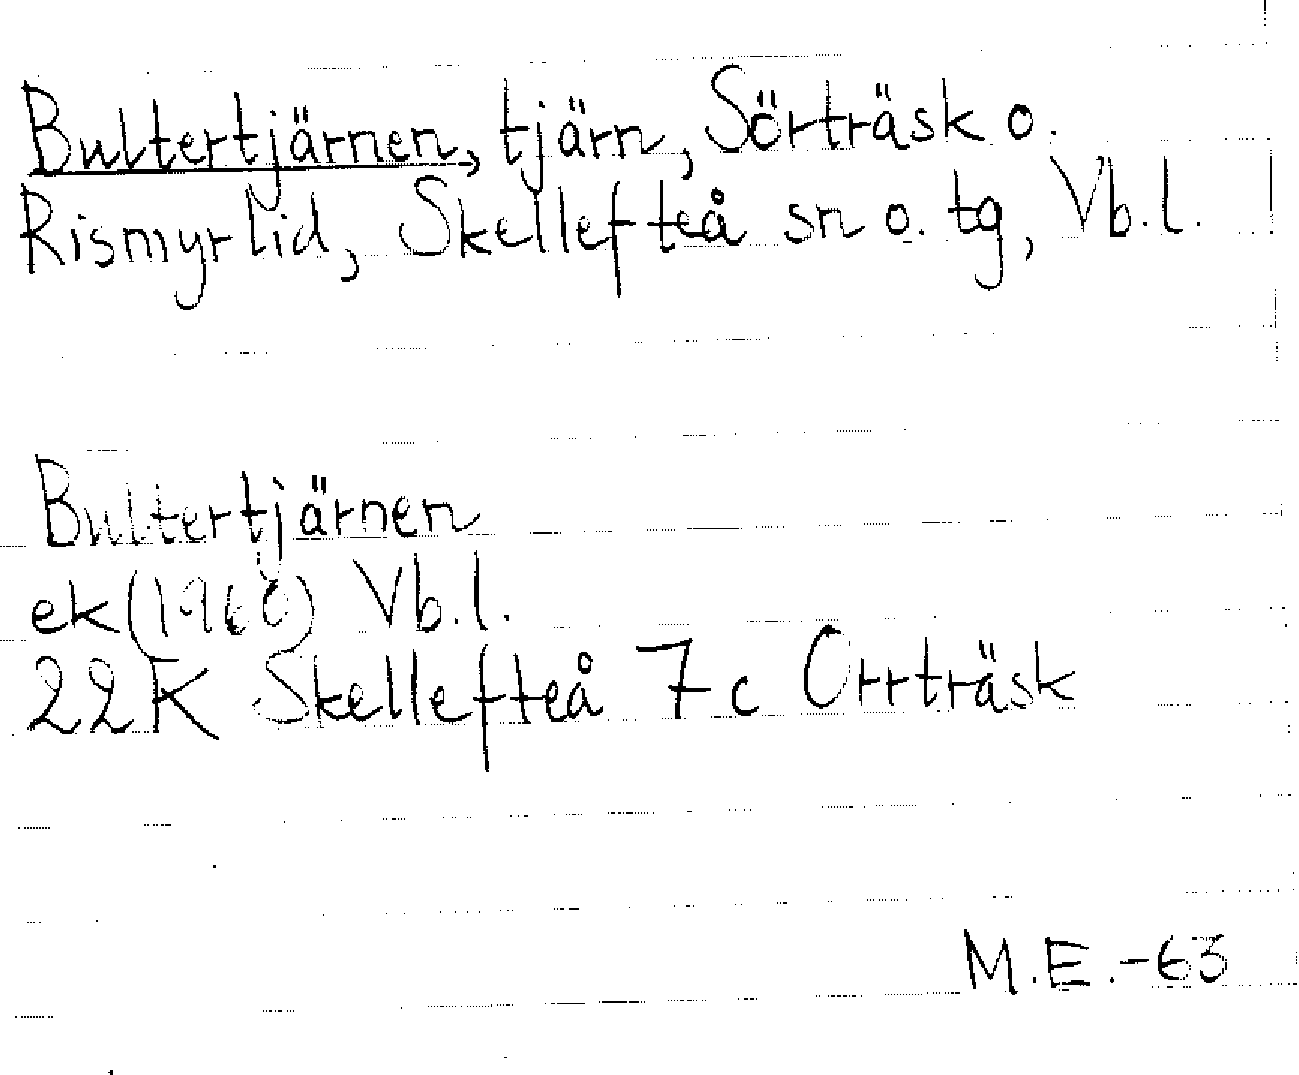 Bultertjärnen, tjärn, Sörträsk o.
Rismyrlid, Skellefteå sn o. tg, Vb.l.
Bultertjärnen
ek (1960) Vb.l.
22K Skellefteå 7c Orrträsk
M.E.-63